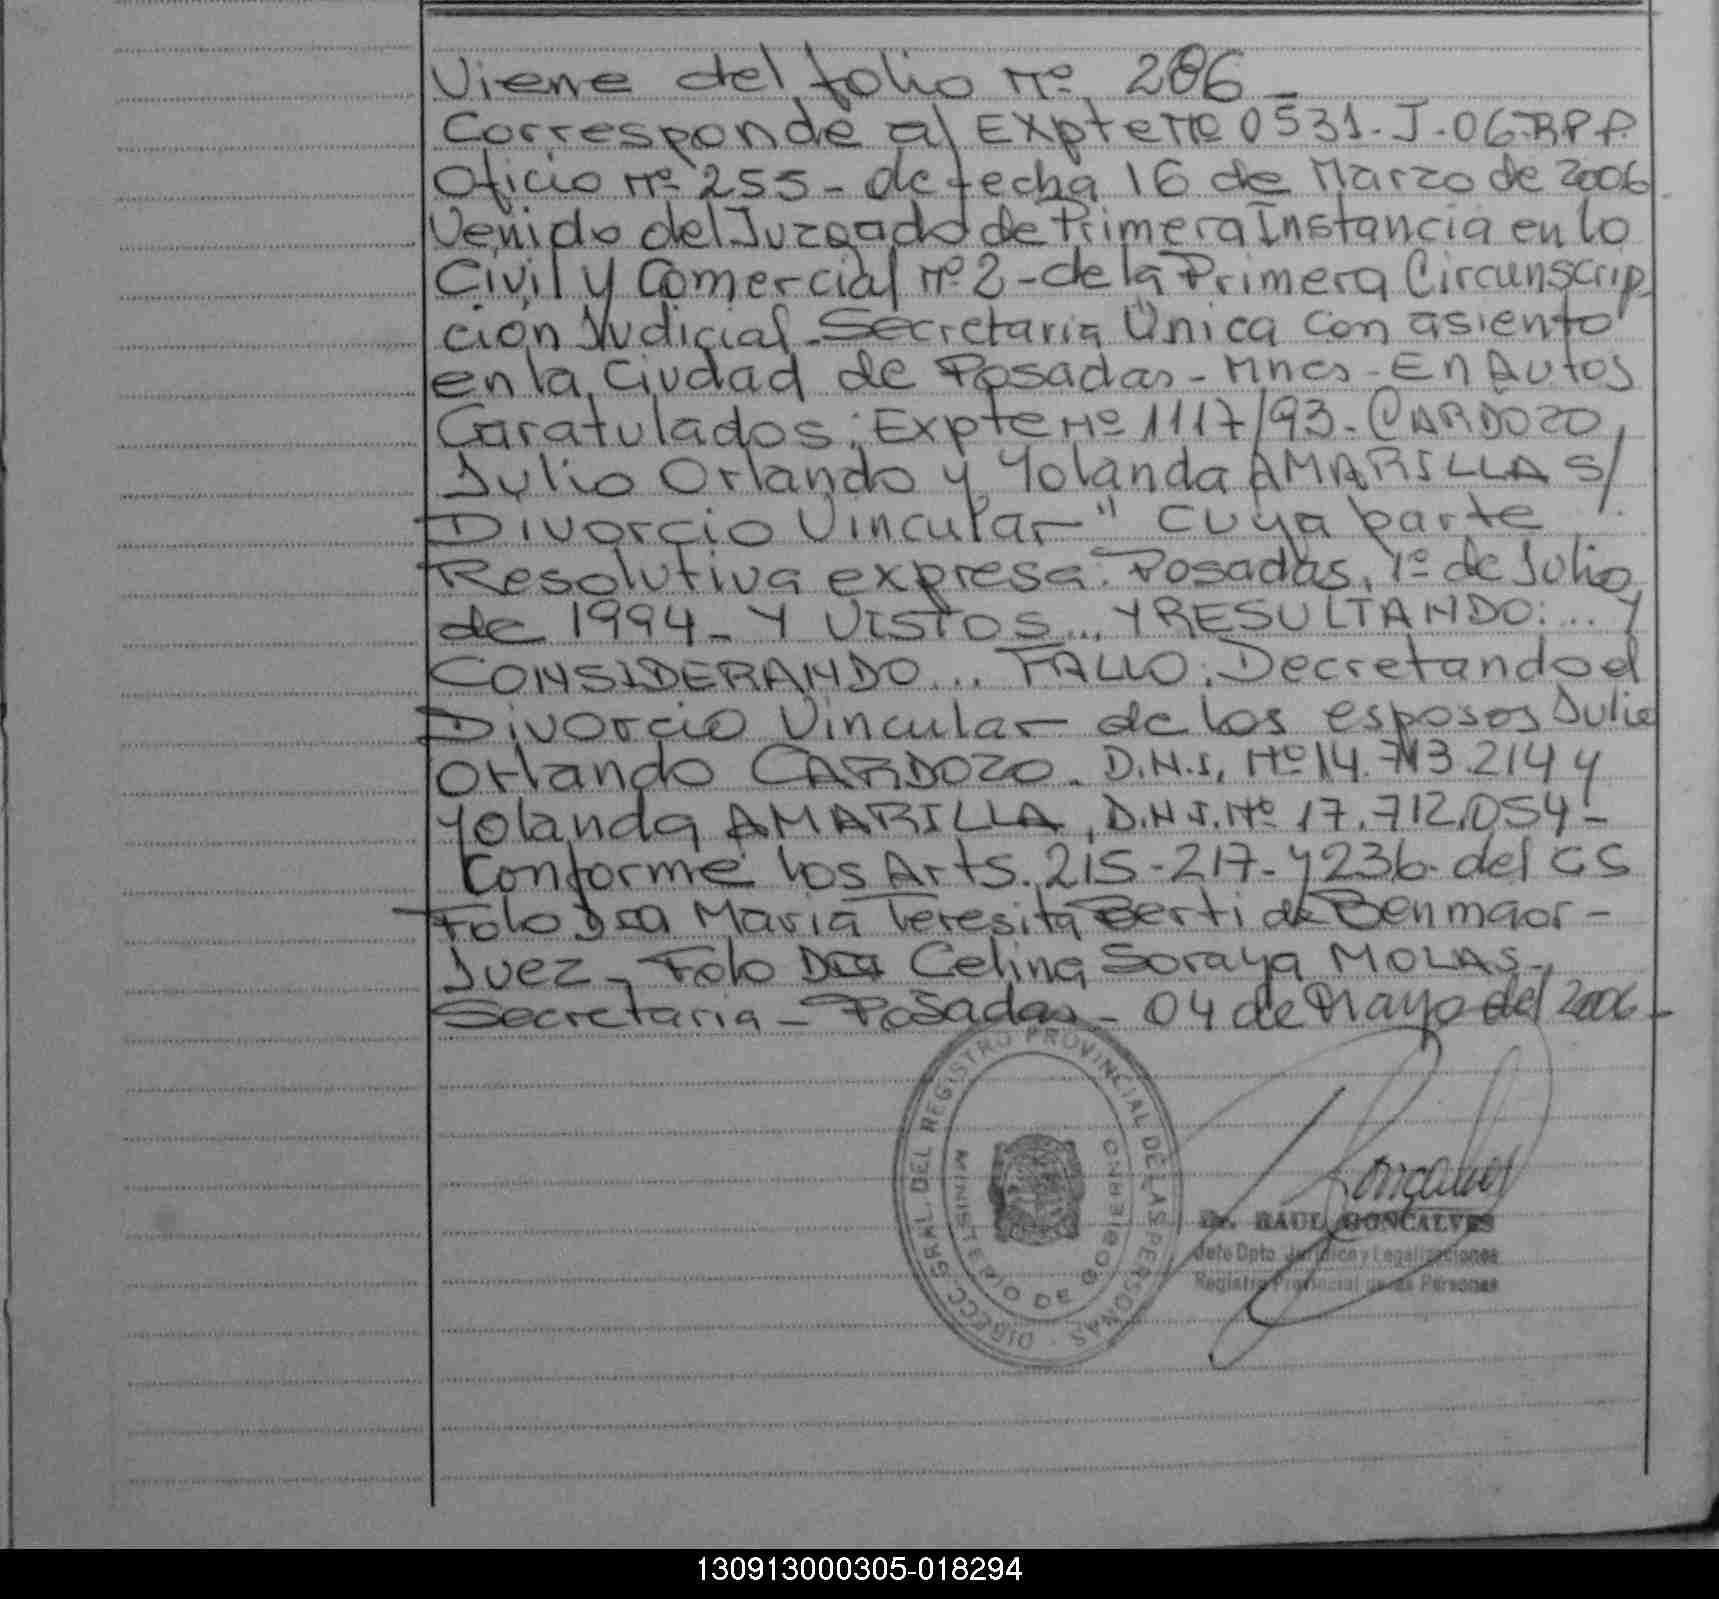 Viene del folio nº 286 -
Corresponde al Expte nº 0531-J-06-RPP
Oficio nº 255 - de fecha 16 de Marzo de 2006
Venido del Juzgado de Primera Instancia en lo
Civil y Comercial nº 2 - de la Primera Circunscrip
ción Judicial - Secretaria Única con asiento
en la Ciudad de Posadas - Mnes - En Autos
Caratulados: Expte Nº 1117/93 - CARDOZO
Julio Orlando y Yolanda AMARILLA S/
Divorcio Vincular" cuya parte
Resolutiva expresa: Posadas, 1º de Julio
de 1994 - Y VISTOS... Y RESULTANDO:... Y
CONSIDERANDO... FALLO: Decretando el
Divorcio Vincular de los esposos Julio
Orlando CARDOZO. D.N.I. Nº 14.713.214 y
Yolanda AMARILLA, D.N.I. Nº 17.712.054 -
Conforme los Arts. 215-217- y 236- del CS
Fdo Dra Maria Teresita Berti de Benmaor -
Juez - Fdo Dra Celina Soraya MOLAS -
Secretaria - Posadas - 04 de Mayo del 2006 -
DIRECC. GRAL. DEL REGISTRO PROVINCIAL DE LAS PERSONAS
MINISTERIO DE GOBIERNO
Dr. RAUL GONCALVES
Jefe Dpto. Jurídico y Legalizaciones
Registro Provincial de las Personas
130913000305-018294